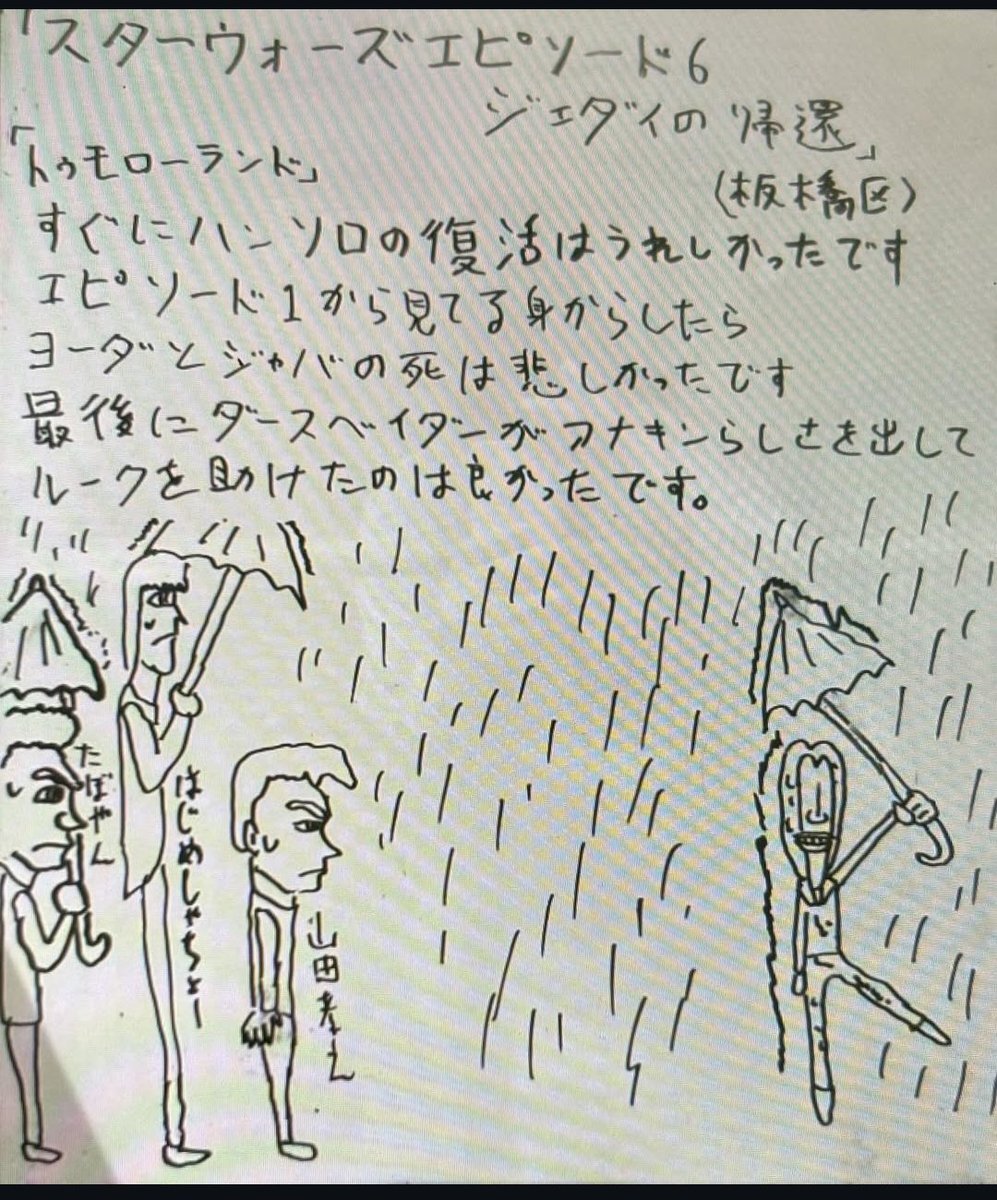 「スターウォーズエピソード6
ジェダイの帰還」
「トゥモローランド」
(板橋区)
すぐにハンソロの復活はうれしかったです
エピソード1から見てる身からしたら
ヨーダとジャバの死は悲しかったです
最後にダースベイダーがアナキンらしさを出して
ルークを助けたのは良かったです。
たぼやん
はじめしゃちょー
山田孝之